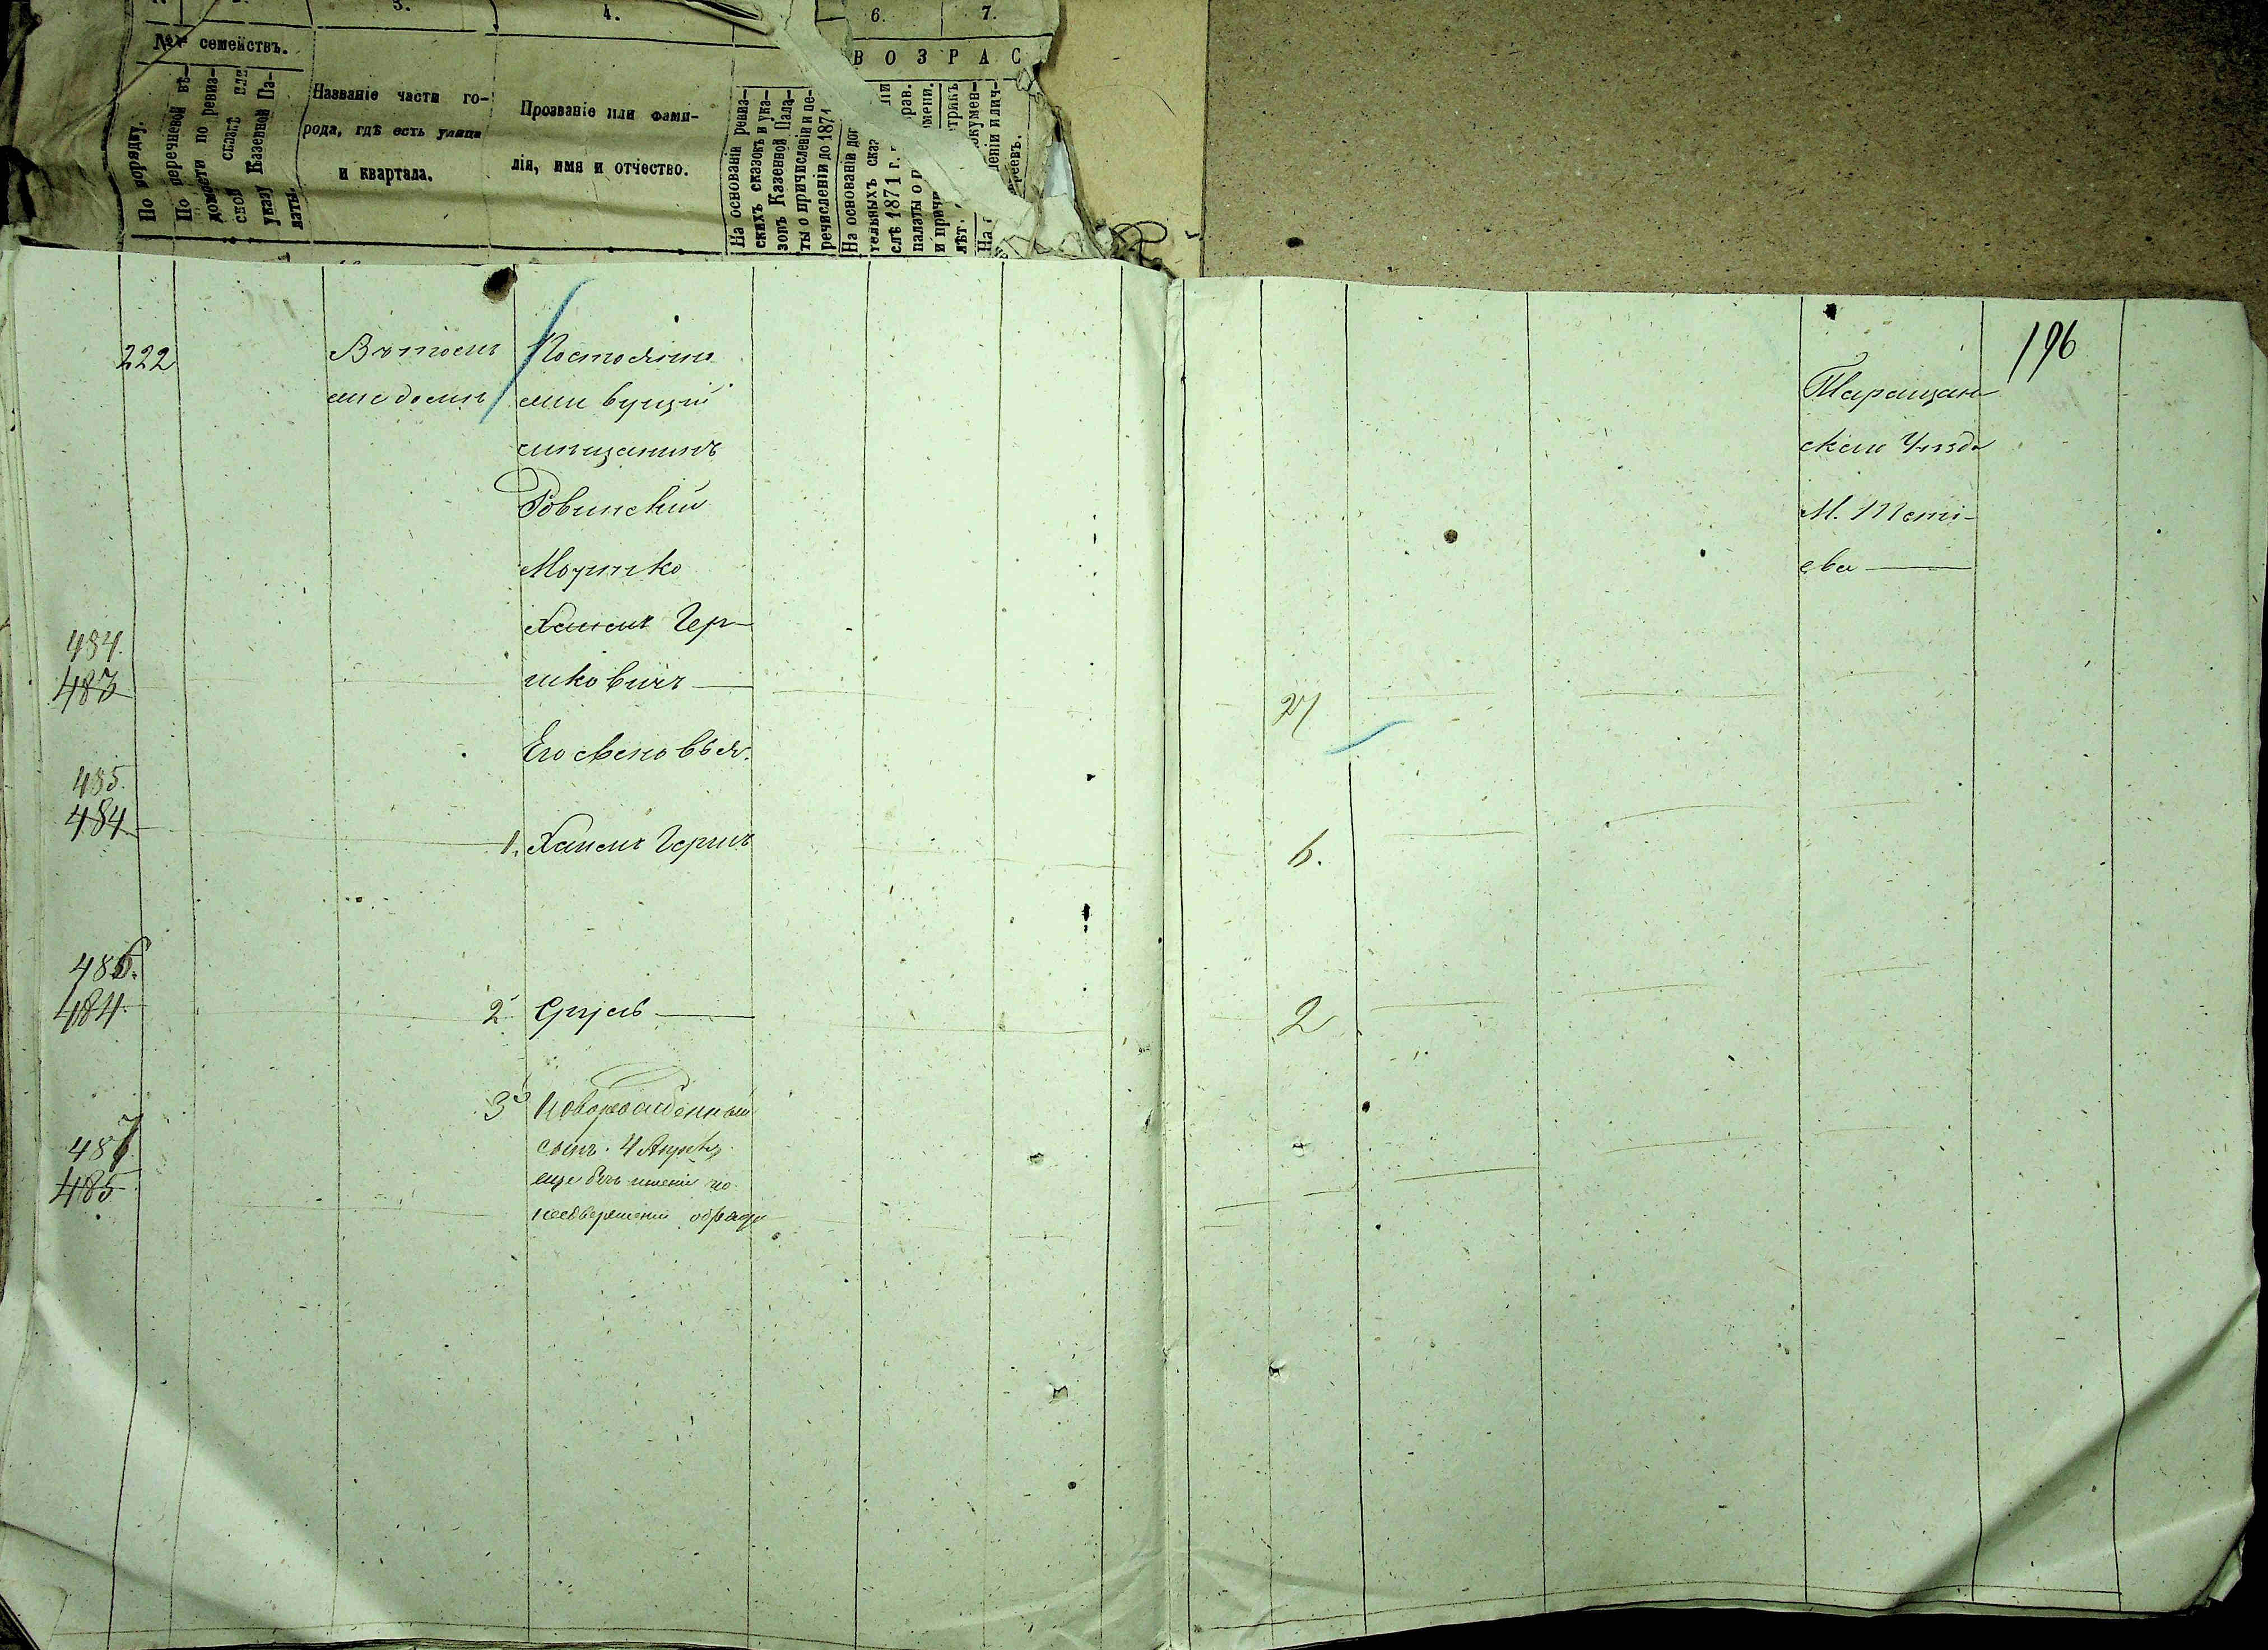 3.
4.
6.
7.
№№ семействъ.
В О З Р А С
По порядку.
По перечневой вѣ-
домости по ревиз-
ской сказкѣ или
указу Казенной Па-
латы.
Названіе части го-
рода, гдѣ есть улица
и квартала.
Прозваніе или фами-
лія, имя и отчество.
На основаніи ревиз-
скихъ сказокъ и ука-
зовъ Казенной Пала-
ты о причисленіи и пе-
речисленіи до 1871
На основаніи
тельныхъ
слѣ 1871 г.
палаты о
и
лѣт.
На
222
Въ томъ
же домѣ
Постоянно
живущій
мѣщанинъ
Ровинскій
Мошко
Хаимъ Гер-
шковичъ
Его сыновья.
1. Хаимъ Гершъ
2. Сруль
3. Новорожденный
сынъ. 4 Апрѣля
еще безъ имени по
несовершенію обряда
484.
483
485.
484
486.
484.
487
485
27
6.
2
196
Таращан-
скаго Уѣзда
М. Тети-
ева